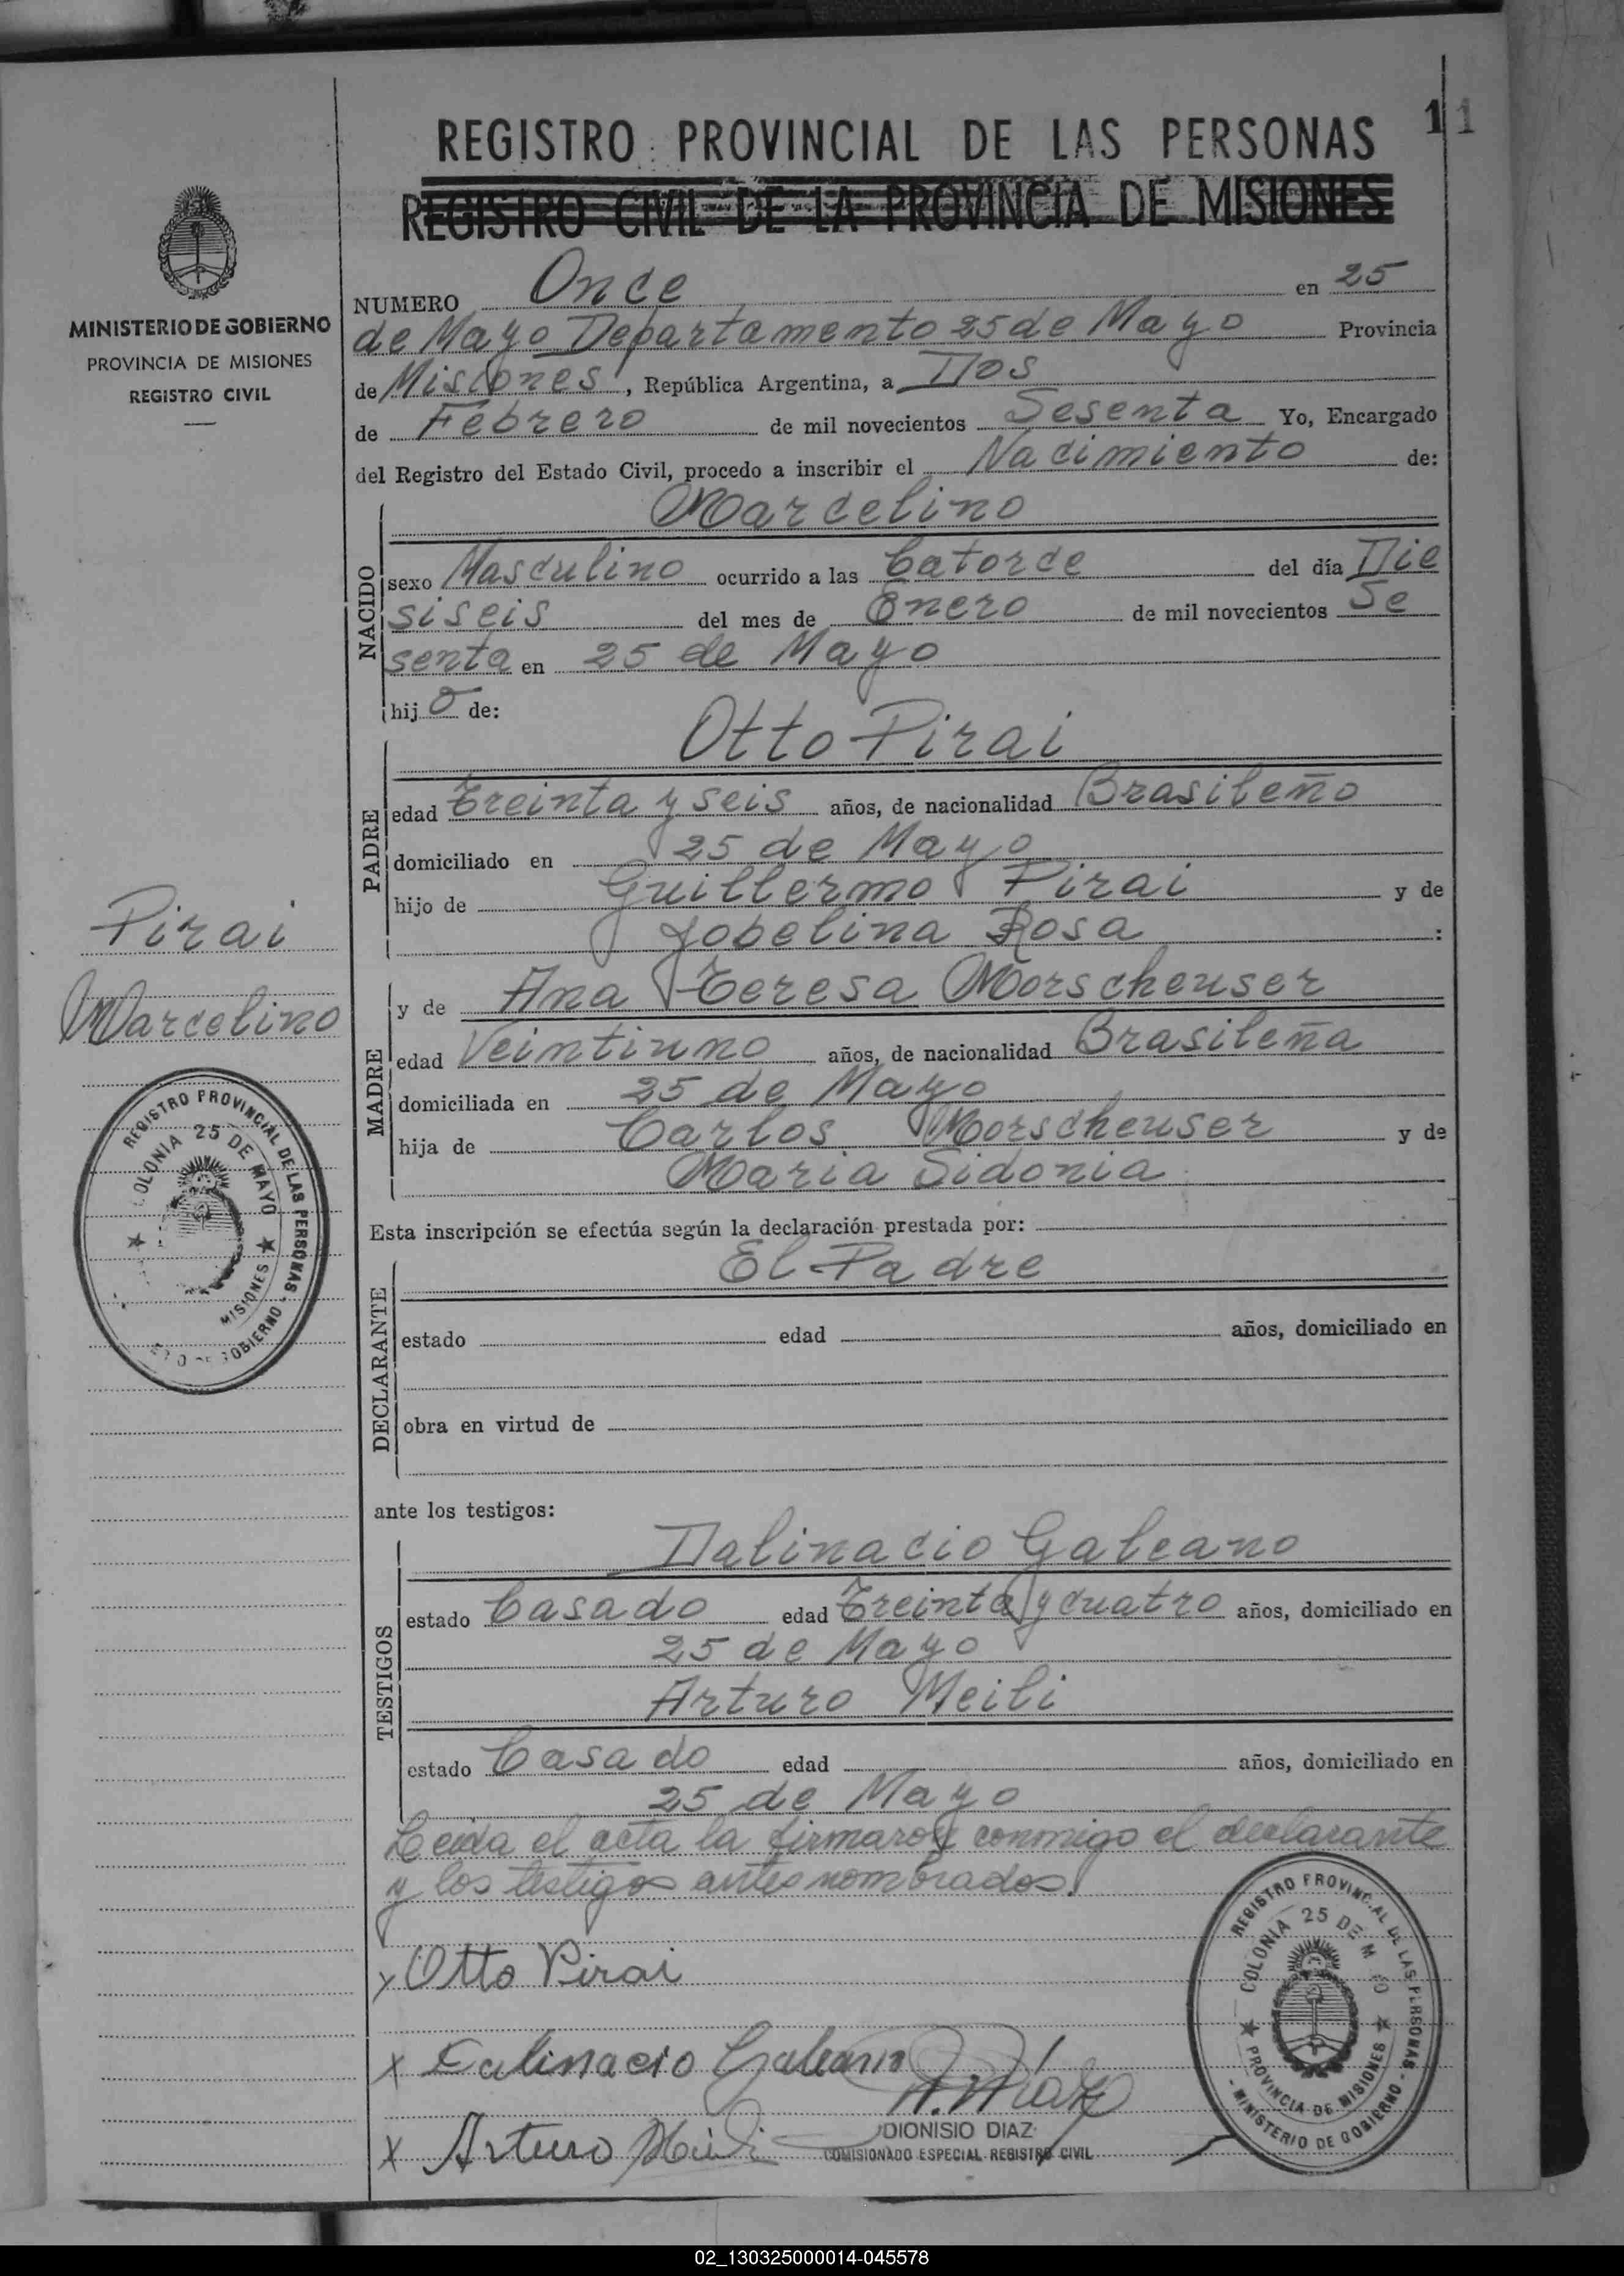 11
REGISTRO PROVINCIAL DE LAS PERSONAS
REGISTRO CIVIL DE LA PROVINCIA DE MISIONES
MINISTERIO DE GOBIERNO
PROVINCIA DE MISIONES
REGISTRO CIVIL
NUMERO Once en 25
de Mayo Departamento 25 de Mayo Provincia
de Misiones, República Argentina, a Dos
de Febrero de mil novecientos Sesenta Yo, Encargado
del Registro del Estado Civil, procedo a inscribir el Nacimiento de:
NACIDO
Marcelino
sexo Masculino ocurrido a las Catorce del día Die
siseis del mes de Enero de mil novecientos Se
senta en 25 de Mayo
hij o de:
PADRE
Otto Pirai
edad Treinta y seis años, de nacionalidad Brasileño
domiciliado en 25 de Mayo
hijo de Guillermo Pirai y de
Jobelina Rosa :
Pirai
Marcelino
MADRE
y de Ana Teresa Morscheuser
edad Veintiuno años, de nacionalidad Brasileña
domiciliada en 25 de Mayo
hija de Carlos Morscheuser y de
Maria Sidonia
REGISTRO PROVINCIAL DE LAS PERSONAS
COLONIA 25 DE MAYO
MISIONES
DE GOBIERNO
Esta inscripción se efectúa según la declaración prestada por:
DECLARANTE
El Padre
estado edad años, domiciliado en
obra en virtud de
ante los testigos:
TESTIGOS
Dalinacio Galeano
estado Casado edad Treinta y cuatro años, domiciliado en
25 de Mayo
Arturo Meili
estado Casado edad años, domiciliado en
25 de Mayo
Leida el acta la firmaron conmigo el declarante
y los testigos antes nombrados.
x Otto Pirai
x Dalinacio Galeano
D. Diaz
x Arturo Meili
DIONISIO DIAZ
COMISIONADO ESPECIAL REGISTRO CIVIL
REGISTRO PROVINCIAL DE LAS PERSONAS
COLONIA 25 DE MAYO
PROVINCIA DE MISIONES
- MINISTERIO DE GOBIERNO -
02_130325000014-045578